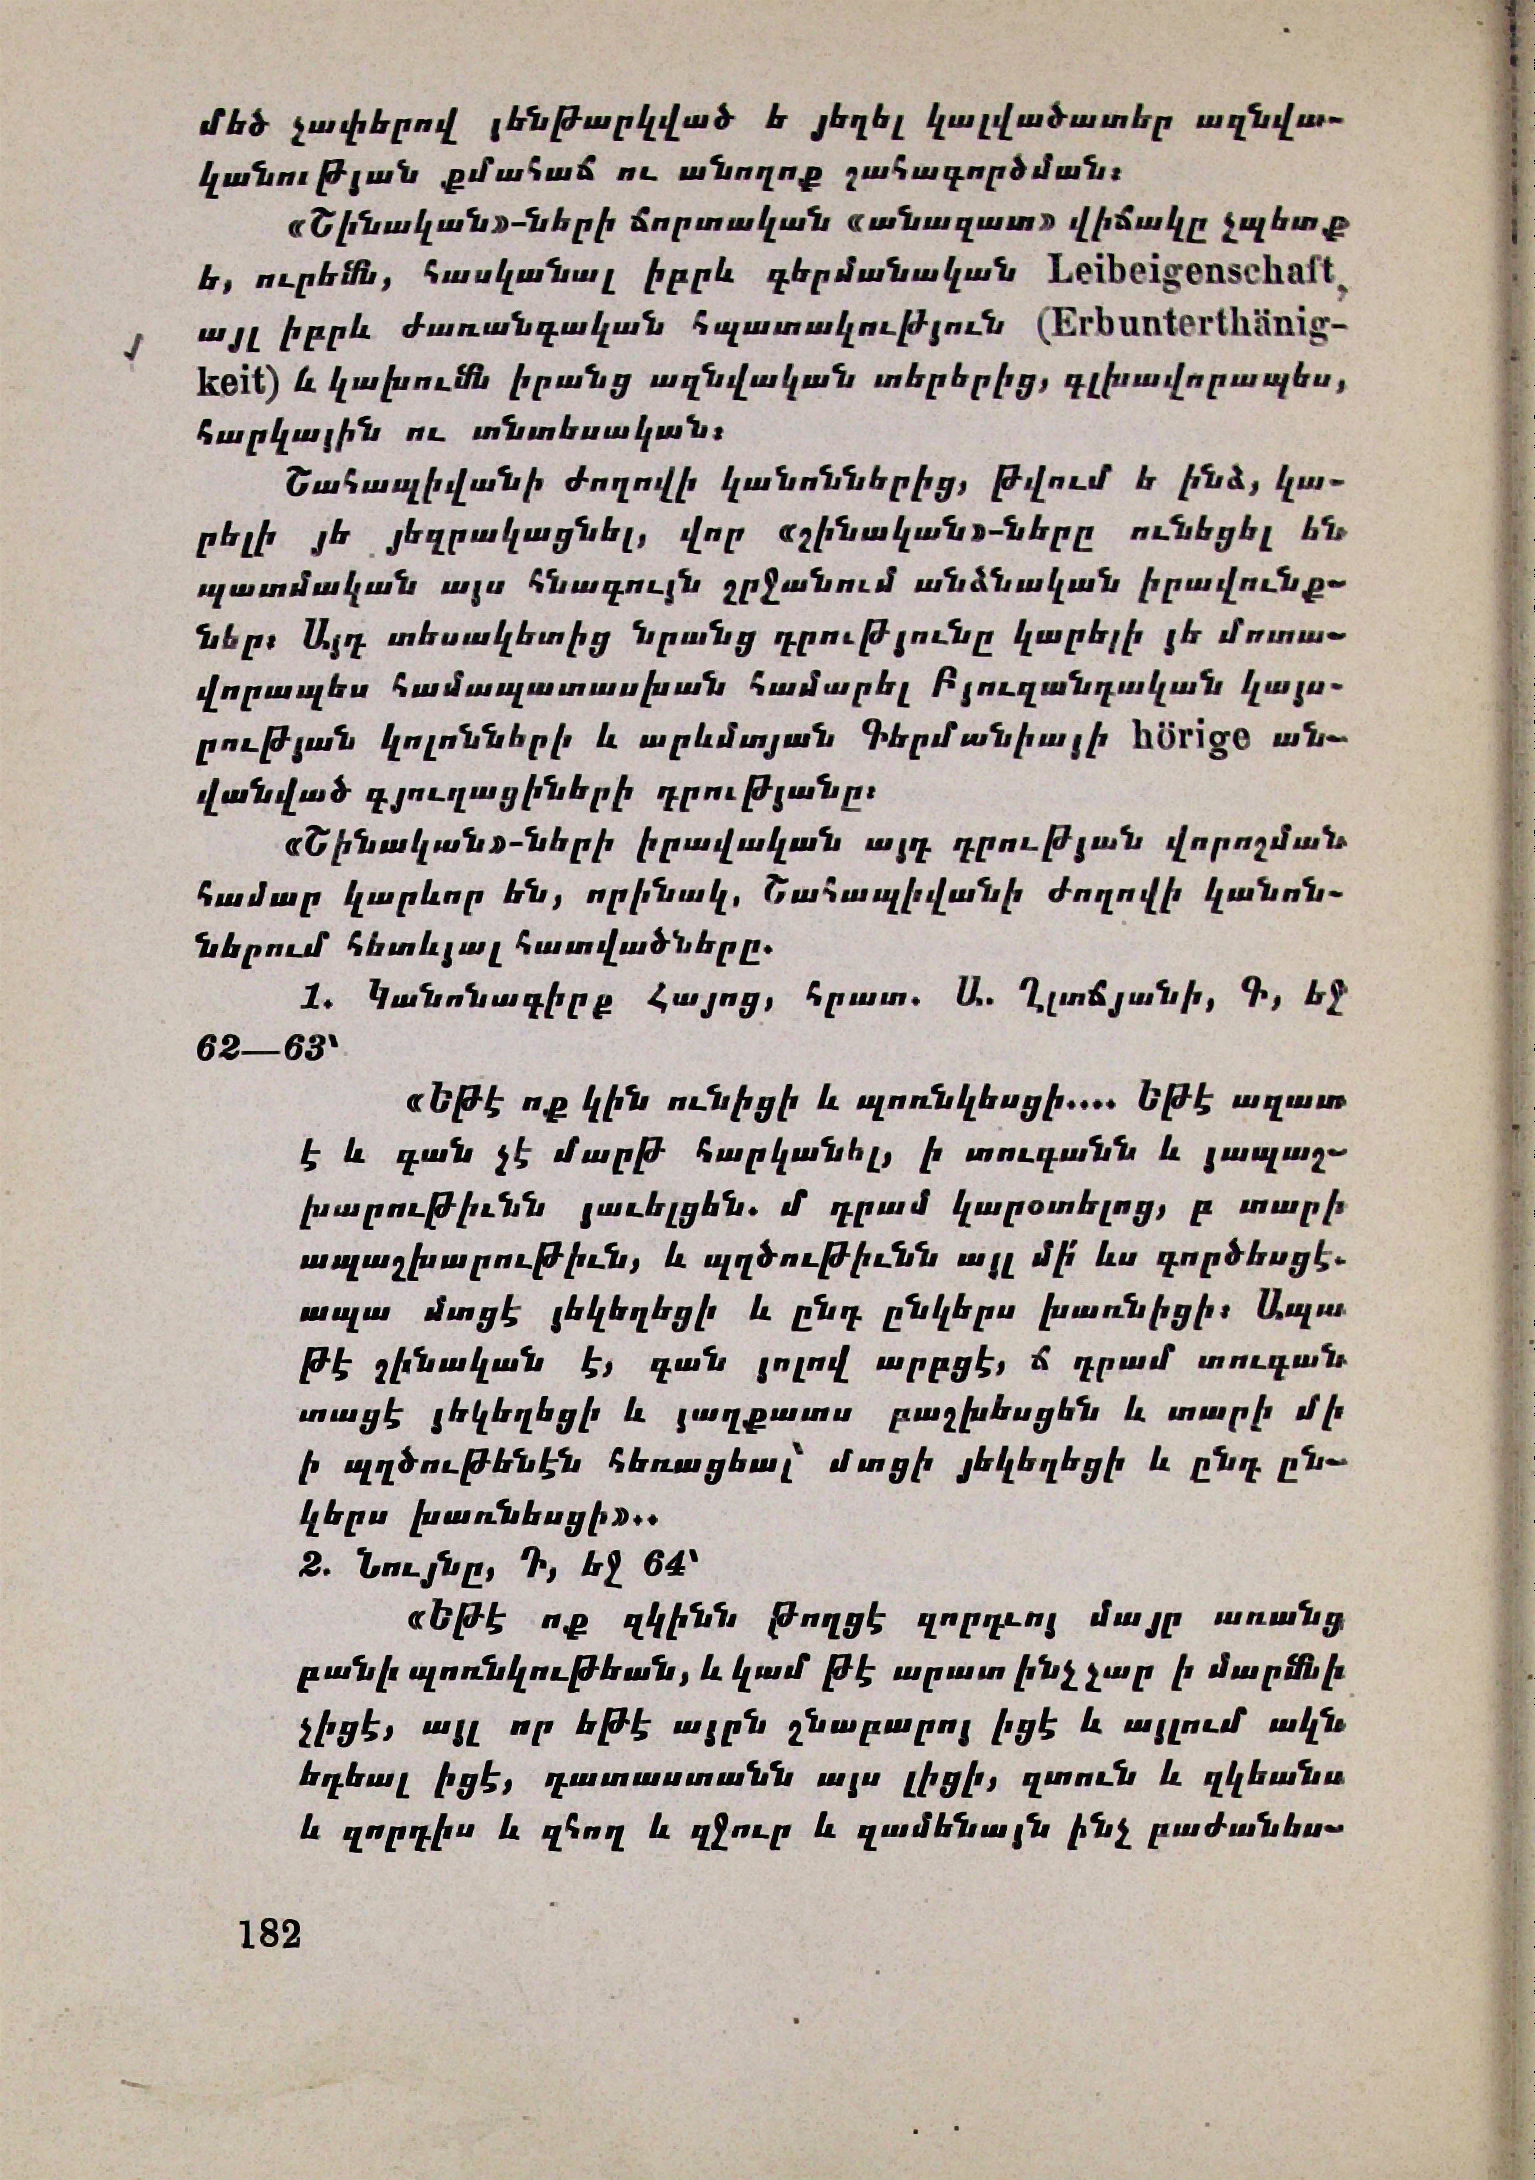 մեծ չափերով յենթարկված ե յեղել կալվածատեր ազնվա-
կանության քմահաճ ու անողոք շահագործման։
«Շինական»-ների ճորտական «անազատ» վիճակը չպետք
ե, ուրեմն, հասկանալ իբրև գերմանական Leibeigenschaft,
այլ իբրև ժառանգական հպատակություն (Erbunterthänig-
keit) և կախումն իրանց ազնվական տերերից, գլխավորապես,
հարկային ու տնտեսական։
Շահապիվանի ժողովի կանոններից, թվում ե ինձ, կա-
րելի յե յեզրակացնել, վոր «շինական»-ները ունեցել են
պատմական այս հնագույն շրջանում անձնական իրավունք-
ներ։ Այդ տեսակետից նրանց դրությունը կարելի յե մոտա-
վորապես համապատասխան համարել Բյուզանդական կայս-
րության կոլոնների և արևմտյան Գերմանիայի hörige ան-
վանված գյուղացիների դրությանը։
«Շինական»-ների իրավական այդ դրության վորոշման
համար կարևոր են, որինակ, Շահապիվանի ժողովի կանոն-
ներում հետևյալ հատվածները.
1. Կանոնագիրք Հայոց, հրատ. Ա. Ղլտճյանի, Գ, եջ
62—63՝
«Եթէ ոք կին ունիցի և պոռնկեսցի.... Եթէ ազատ
է և գան չէ մարթ հարկանել, ի տուգանն և յապաշ-
խարութիւնն յաւելցեն. մ դրամ կարօտելոց, բ տարի
ապաշխարութիւն, և պղծութիւնն այլ մի՛ ևս գործեսցէ.
ապա մտցէ յեկեղեցի և ընդ ընկերս խառնիցի։ Ապա
թէ շինական է, գան յոլով արբցէ, ճ դրամ տուգան
տացէ յեկեղեցի և յաղքատս բաշխեսցեն և տարի մի
ի պղծութենէն հեռացեալ՝ մտցի յեկեղեցի և ընդ ըն-
կերս խառնեսցի»..
2. Նույնը, Դ, եջ 64՝
«Եթէ ոք զկինն թողցէ զորդւոյ մայր առանց
բանի պոռնկութեան, և կամ թէ արատ ինչ չար ի մարմնի
չիցէ, այլ որ եթէ այրն շնաբարոյ իցէ և այլում ակն
եդեալ իցէ, դատաստանն այս լիցի, զտուն և զկեանս
և զորդիս և զհող և զջուր և զամենայն ինչ բաժանես-
182